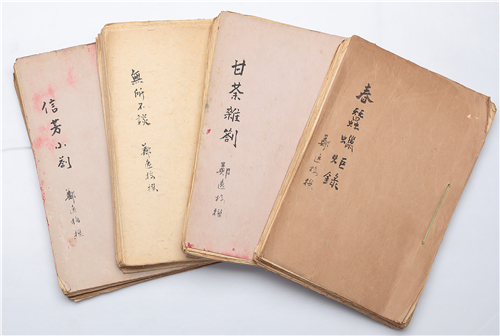 信芳小劄
鄭逸梅撰
無所不談
鄭逸梅撰
甘茶雜劄
鄭逸梅撰
春蠶蠟炬錄
鄭逸梅撰